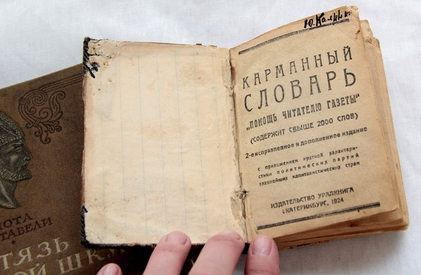 Ю. Калрис
КАРМАННЫЙ
СЛОВАРЬ
„ПОМОЩЬ ЧИТАТЕЛЮ ГАЗЕТЫ“
(СОДЕРЖИТ СВЫШЕ 2000 СЛОВ)
2-е исправленное и дополненное издание
с приложением краткой характери-
стики политических партий
главнейших капиталистических стран
ИЗДАТЕЛЬСТВО УРАЛКНИГА
ЕКАТЕРИНБУРГ, 1924
ШОТА
РУСТАВЕЛИ